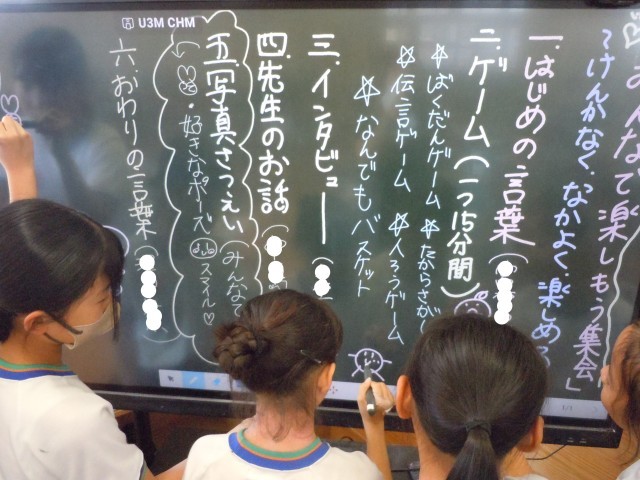 みんなで楽しもう集会」
?けんかなく、なかよく、楽しめる
一.はじめの言葉(
二.ゲーム(一つ15分間)
☆ばくだんゲーム ☆たからさがし
☆伝言ゲーム ☆人ろうゲーム
☆なんでもバスケット
三.インタビュー(
四.先生のお話(
五.写真さつえい(みんなで
・好きなポーズ スマイル♡
六.おわりの言葉(
U3M CHM